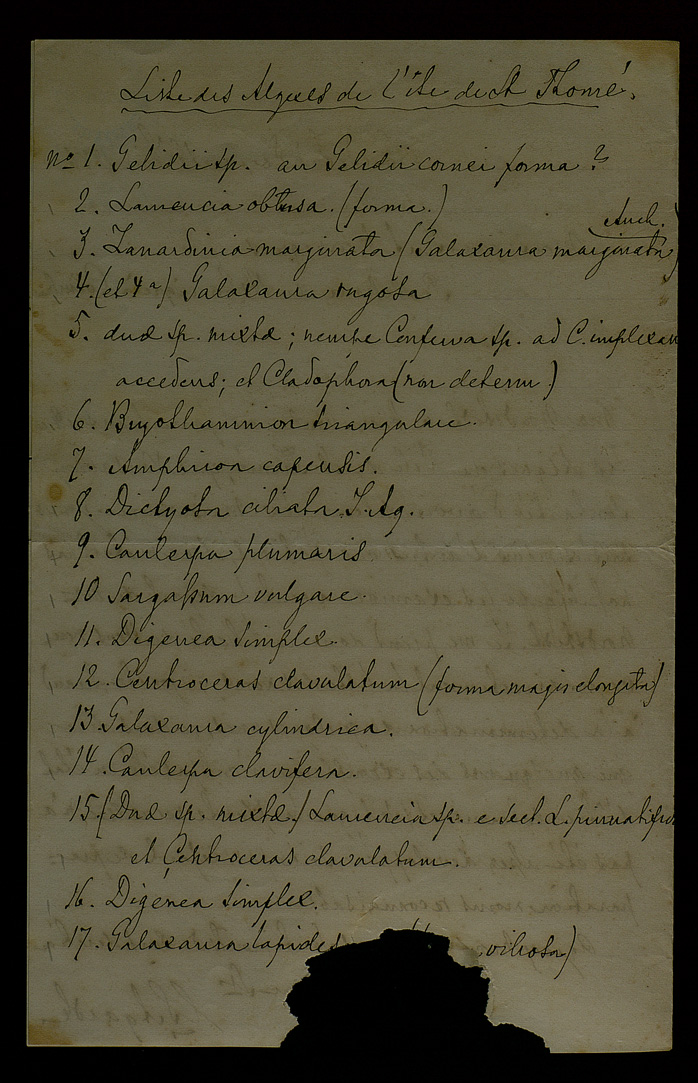 Liste des Algues de l'île de St Thomé.
No 1. Gelidii sp. an Gelidii cornei forma?
2. Laurencia obtusa. (forma.)
Auch.
3. Zanardinia marginata (Galaxaura marginata)
4. (et 4a) Galaxaura rugosa
5. duæ sp. mixtæ; nempe Conferva sp. ad C. implexam
accedens; et Cladophora (non determ.)
6. Bryothamnion triangulare.
7. Amphiroa capensis.
8. Dictyota ciliata J. Ag.
9. Caulerpa plumaris.
10 Sargassum vulgare.
11. Digenea simplex.
12. Centroceras clavulatum (forma magis elongata)
13. Galaxaura cylindrica.
14. Caulerpa clavifera.
15. (Duæ sp. mixtæ) Laurencia sp. e sect. L. pinnatifid
et Centroceras clavulatum.
16. Digenea simplex.
17. Galaxaura lapides villosa)